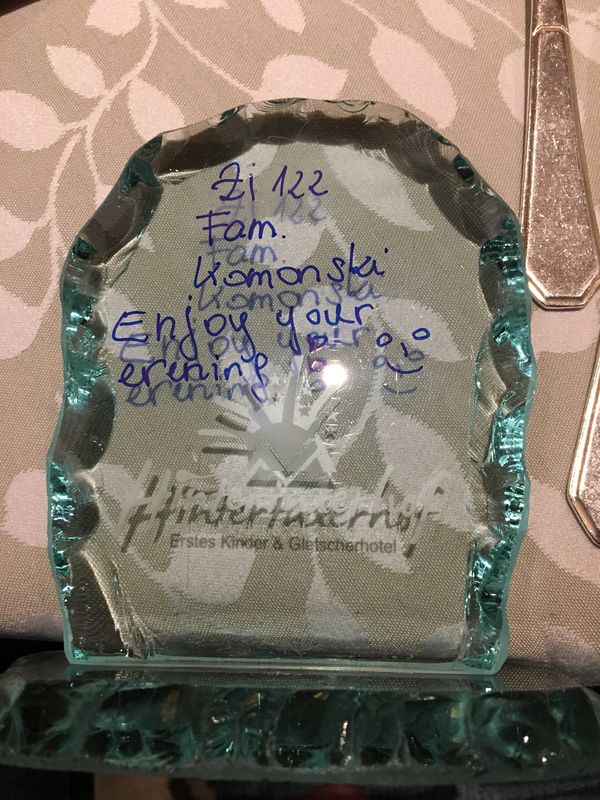 Zi 122
Fam.
Komonski
Enjoy your
evening !
Hintertuxerhof
Erstes Kinder & Gletscherhotel